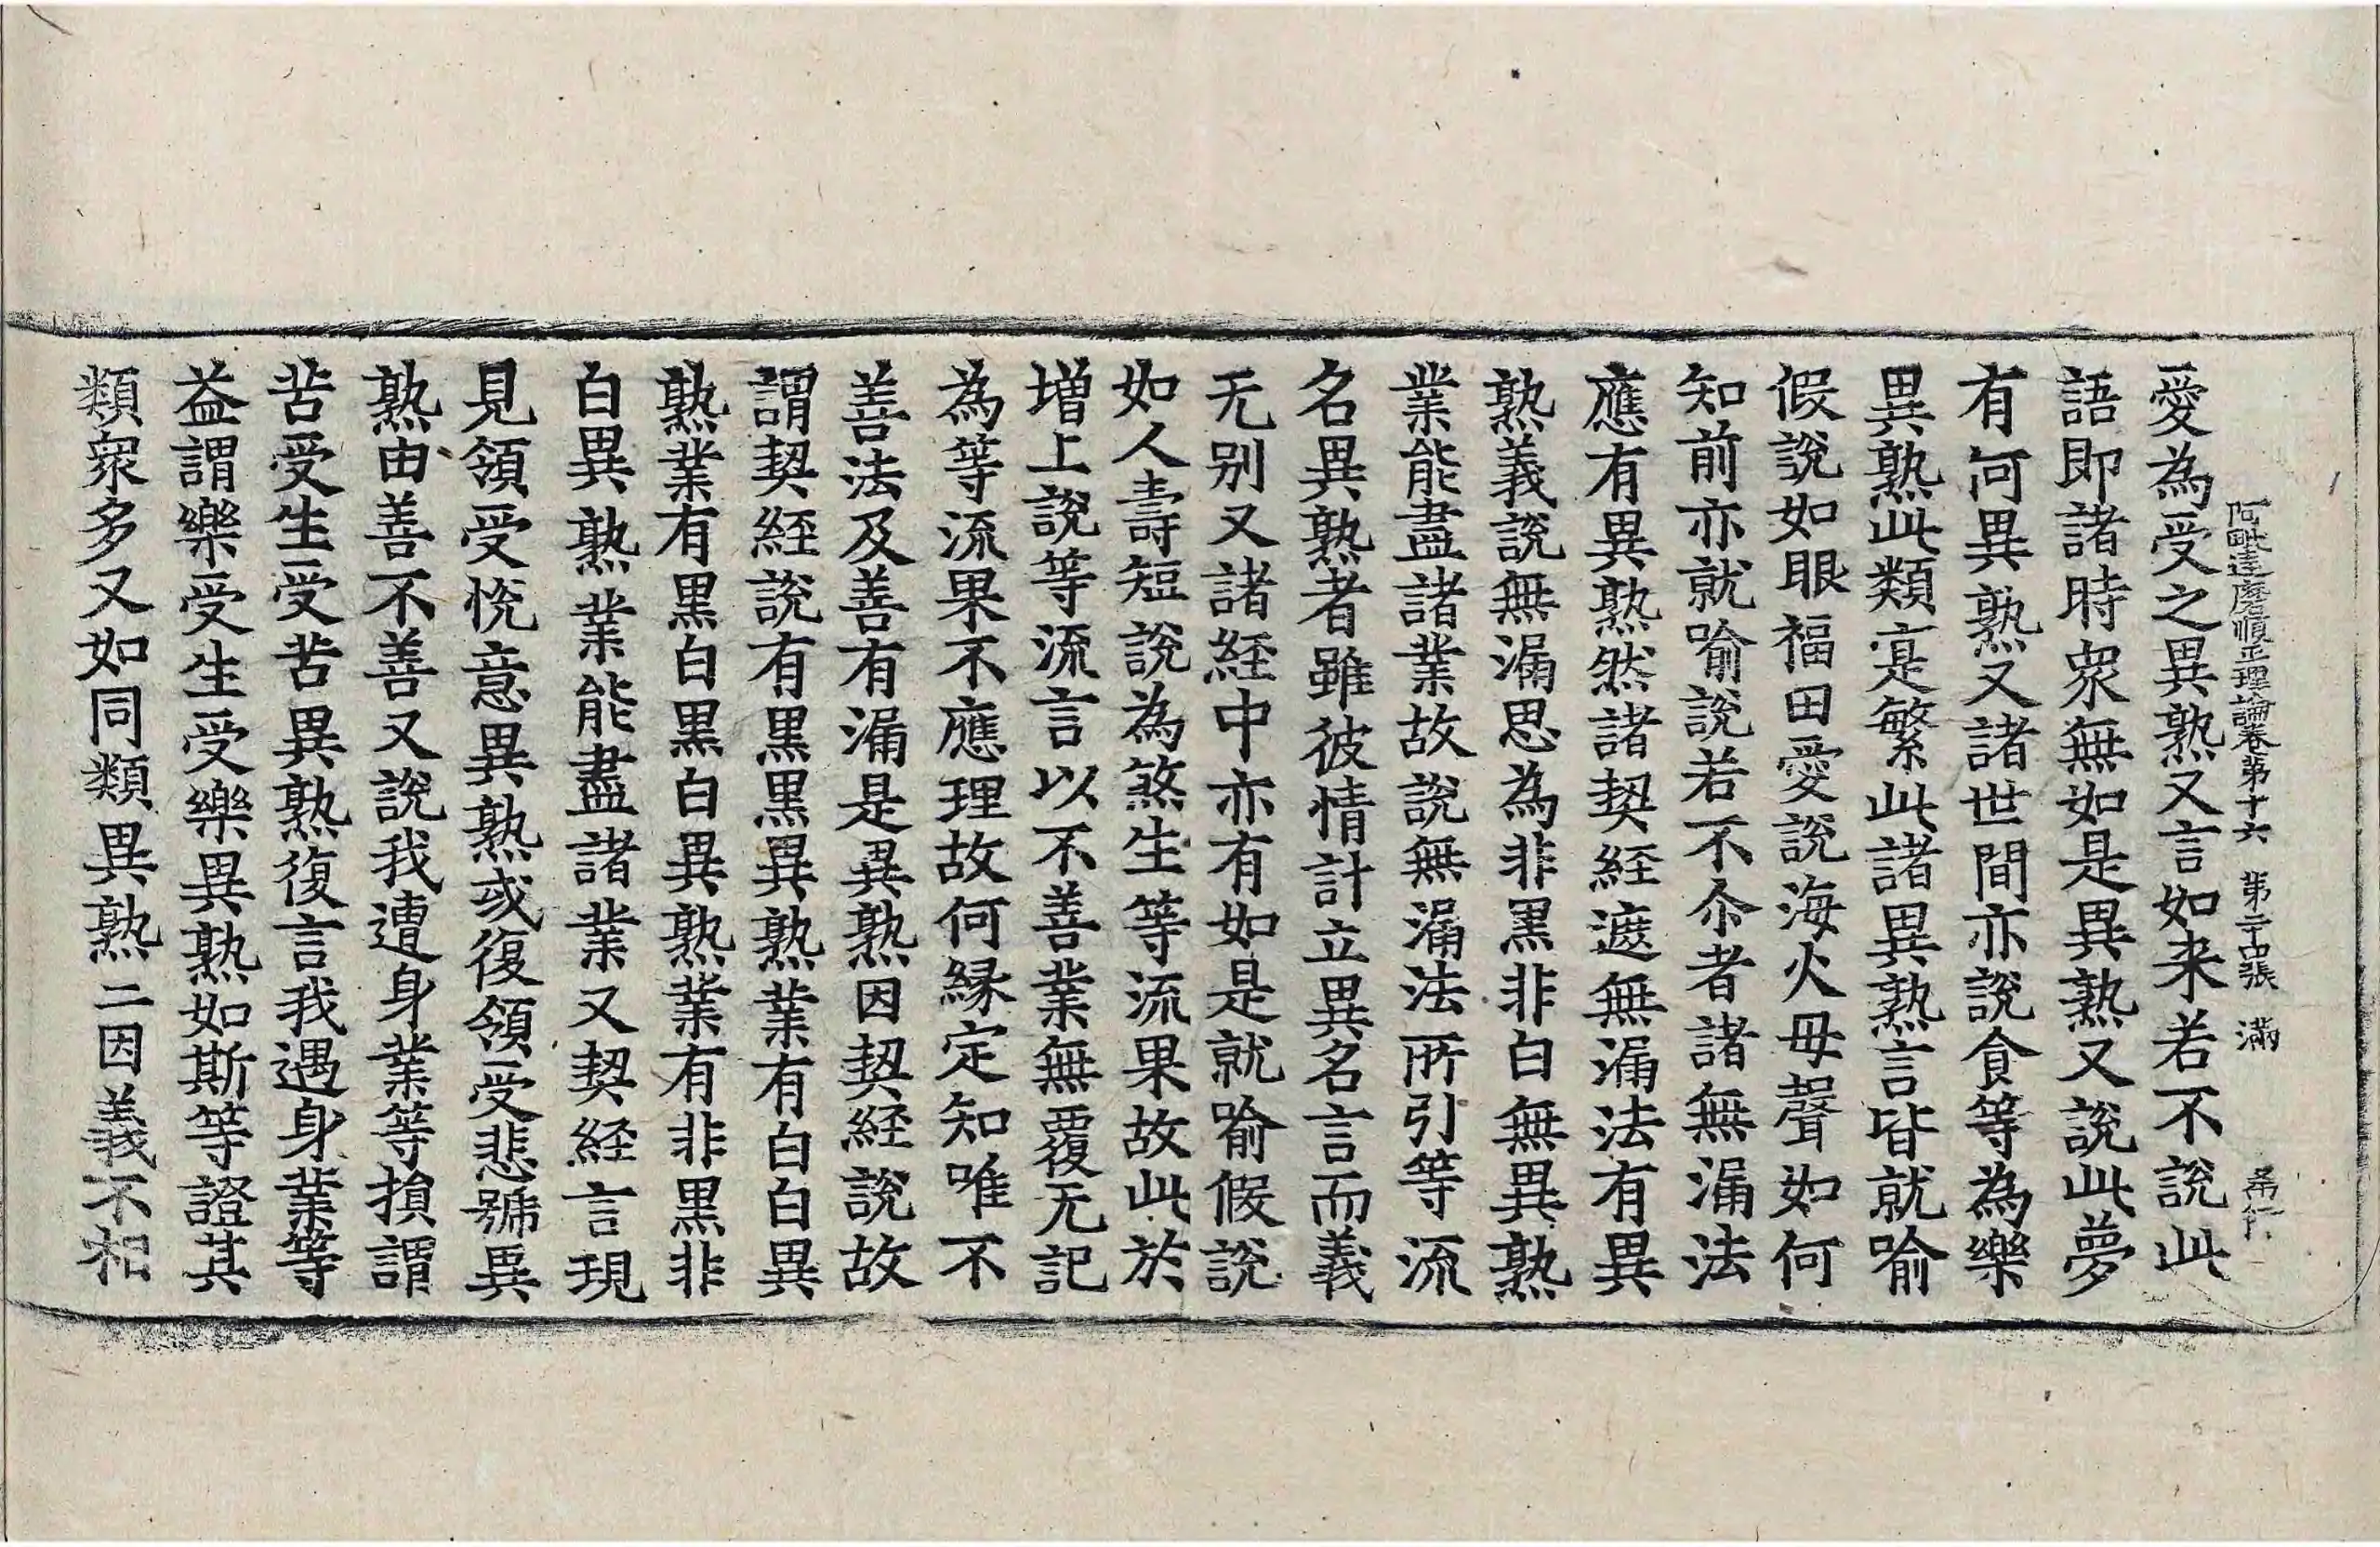 阿毗達磨順正理論卷第十六 第二十四張 滿
愛為受之異熟又言如来若不說此
語即諸時衆無如是異熟又說此夢
有何異熟又諸世間亦說食等為樂
異熟此類寔繁此諸異熟言皆就喻
假說如眼福田愛說海火母聲如何
知前亦就喻說若不尒者諸無漏法
應有異熟然諸契経遮無漏法有異
熟義說無漏思為非黑非白無異熟
業能盡諸業故說無漏法所引等流
名異熟者雖彼情計立異名言而義
无別又諸経中亦有如是就喻假說
如人壽短說為煞生等流果故此於
增上說等流言以不善業無覆无記
為等流果不應理故何緣定知唯不
善法及善有漏是異熟因契経說故
謂契経說有黑黑異熟業有白白異
熟業有黑白黑白異熟業有非黑非
白異熟業能盡諸業又契経言現
見領受悅意異熟或復領受悲號異
熟由善不善又說我遭身業等損謂
苦受生受苦異熟復言我遇身業等
益謂樂受生受樂異熟如斯等證其
類衆多又如同類異熟二因義不相